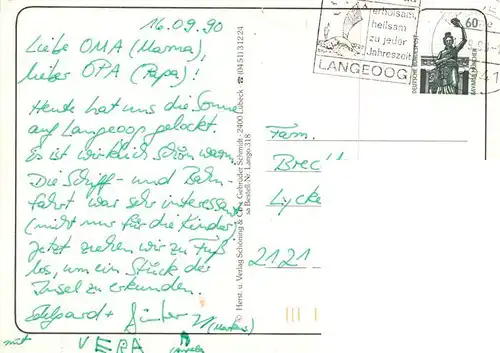 16.09.90
Liebe OMA (Mama),
lieber OPA (Papa)!
Heute hat uns die Sonne
auf Langeoog gelockt.
Es ist wirklich schön warm.
Die Schiff- und Bahn-
fahrt war sehr interessant
(nicht nur für die Kinder)
Jetzt ziehen wir zu Fuß
los, um ein Stück der
Insel zu erkunden.
+ Günter
mit VERA
© Herst. u. Verlag Schöning & Co + Gebrüder Schmidt · 2400 Lübeck · ☎ (0451) 31224
Bestell-Nr. Lango 318
erholsam,
heilsam
zu jeder
Jahreszeit
LANGEOOG
60
DEUTSCHE BUNDESPOST
BAVARIA MÜNCHEN
941
Fam.
Brec
Lycke
2121